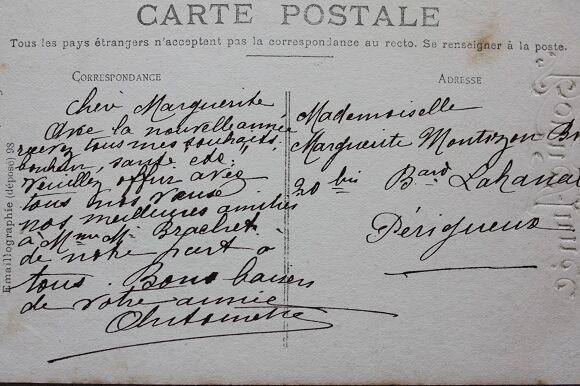 CARTE POSTALE
Tous les pays étrangers n'acceptent pas la correspondance au recto. Se renseigner à la poste.
CORRESPONDANCE
ADRESSE
Chère Marguerite
Avec la nouvelle année
recevez tous mes souhaits.
bonheur, santé etc;
Veuillez offrir avec
tous nos vœux
nos meilleures amitiés
à Mme Mr Brachet
de notre part à
tous. Bons baisers
de votre amie
Antoinette
Mademoiselle
Marguerite Montozon
20 bis Bard Lakanal
Périgueux
Emaillographie (déposé) 98
Bonne Année